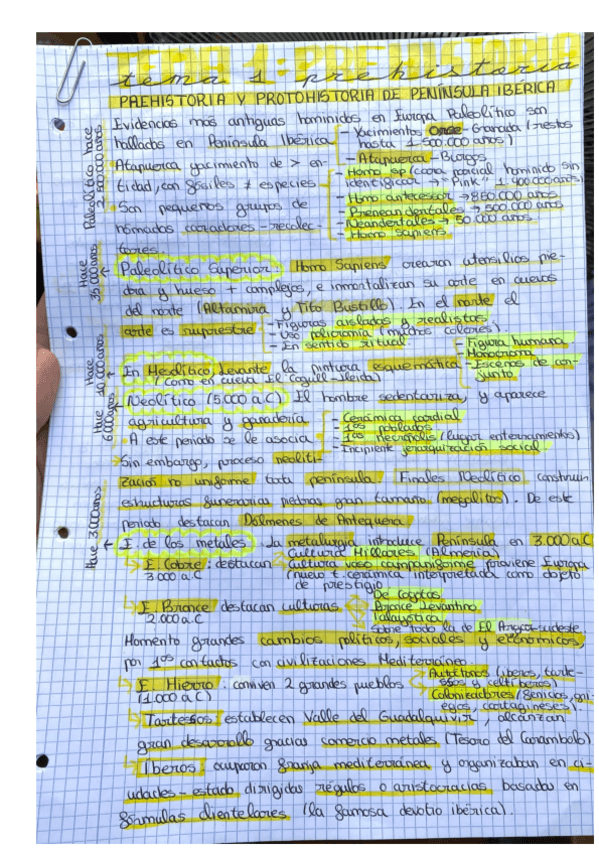 TEMA 1: PREHISTORIA
tema 1 prehistoria
PREHISTORIA Y PROTOHISTORIA DE PENÍNSULA IBÉRICA
Evidencias más antiguas hominidos en Europa Paleolítico son
hallados en Península Ibérica
- Yacimientos Orce - Granada (restos
hasta 1.500.000 años)
- Atapuerca - Burgos
Paleolítico hace
2.500.000 años
Atapuerca yacimiento de > en-
tidad, con fósiles ≠ especies
- Homo sp (cara parcial hominido sin
identificar → "Pink" 1.400.000 años)
- Homo antecessor → 850.000 años
- Preneandertales → 500.000 años
- Neandertales → 50.000 años
- Homo sapiens
· Son pequeños grupos de
nómadas cazadores-recolec-
tores.
Hace
35.000 años
← Paleolítico Superior - Homo Sapiens crearan utensilios pie-
dra y hueso + complejos, e inmortalizan su arte en cuevas
del norte (Altamira y Tito Bustillo). En el norte el
arte es suprestre
- Figuras aisladas y realistas
- Uso policromía (muchos colores).
- En sentido ritual
Hace
10.000 años
← En Mesolítico Levante la pintura esquemática
(como en cueva El Cogull-Lleida)
- Figura humana
- Monocroma
- Escenas de con-
junto
Hace
6.000 años
← Neolítico (5.000 a.C) El hombre sedentariza, y aparece
agricultura y ganadería
· A este periodo se le asocia
- Cerámica cardial
- 1ºs poblados
- 1ºs necrópolis (lugar enterramientos)
- Incipiente jerarquización social
· Sin embargo, proceso neoliti-
zación no uniforme toda península. Finales Neolítico construin
estructuras funerarias piedras gran tamaño (megalitos). De este
periodo destacan Dólmenes de Antequera
Hace 3.000 años
← E. de los metales. La metalurgia introduce Península en 3.000 a.C
E. Cobre: destacan
3.000 a.C
Cultura Millares (Almería)
Cultura vaso campaniforme proviene Europa
(nuevo t. cerámica interpretada como objeto
de prestigio
E. Bronce destacan culturas
2.000 a.C
De Cogotas
Bronce Levantino
Talayótica
Sobre todo la de El Argar-sudeste
Momento grandes cambios políticos, sociales y económicos,
por 1ºs contactos con civilizaciones Mediterráneo.
E. Hierro: conviven 2 grandes pueblos
(1.000 a.C)
Autóctonos (iberos, tarte-
ssos y celtíberos)
Colonizadores (fenicios, gri-
egos, cartagineses)
Tartessos: establecen Valle del Guadalquivir, alcanzan
gran desarrollo gracias comercio metales (Tesoro del Carambolo)
Iberos: ocuparon franja mediterránea y organizaban en ci-
udades-estado dirigidas régulos o aristocracias basadas en
fórmulas clientelares (la famosa devotio ibérica).